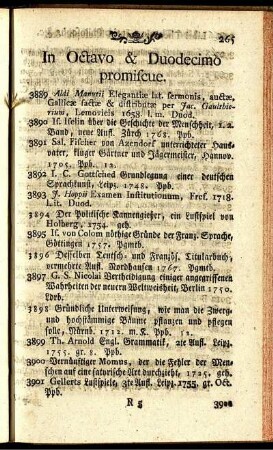 265
In Octavo & Duodecimo
promiscue.
3889 Aldi Manutii Elegantiæ lat. sermonis, auctæ,
Gallicæ factæ & distributæ per Jac. Gaulthe-
rium, Lemovicis 1658. Lm. Duod.
3890 Js. Iselin über die Geschichte der Menschheit, 1. 2.
Band, neue Aufl. Zürch 1768. Ppb.
3891 Sal. Fischer von Azendorf unterrichteter Haus-
vater, kluger Gärtner und Jägermeister, Hannov.
1705. Ppb. 12.
3892 J. C. Gottsched Grundlegung einer deutschen
Sprachkunst, Leipz. 1748. Ppb.
3893 J. Hoppii Examen Institutionum, Fref. 1718.
Lit. Duod.
3894 Der Politische Kannengießer, ein Lustspiel von
Holberg, 1754. geh.
3895 Js. von Colom nöthige Gründe der Franz. Sprache,
Göttingen 1757. Pgmtb.
3896 Desselben Teutsch- und Französ. Titularbuch,
vermehrte Aufl. Nordhausen 1767. Pgmtb.
3897 G. S. Nicolai Vertheidigung einiger angegriffenen
Wahrheiten der neuern Weltweisheit, Berlin 1750.
Ldrb.
3898 Gründliche Unterweisung, wie man die Zwerg-
und hochstämmige Bäume pflanzen und pflegen
solle, Nürnb. 1712. m. K. Ppb. 12.
3899 Th. Arnold Engl. Grammatik, 2te Aufl. Leipz.
1755. gr. 8. Ppb.
3900 Vernünftiger Momus, der die Fehler der Men-
schen auf eine satyrische Art durchzieht, 1725. geh.
3901 Gellerts Lustspiele, 3te Aufl. Leipz. 1755. gr. Oct.
Ppb.
R 5